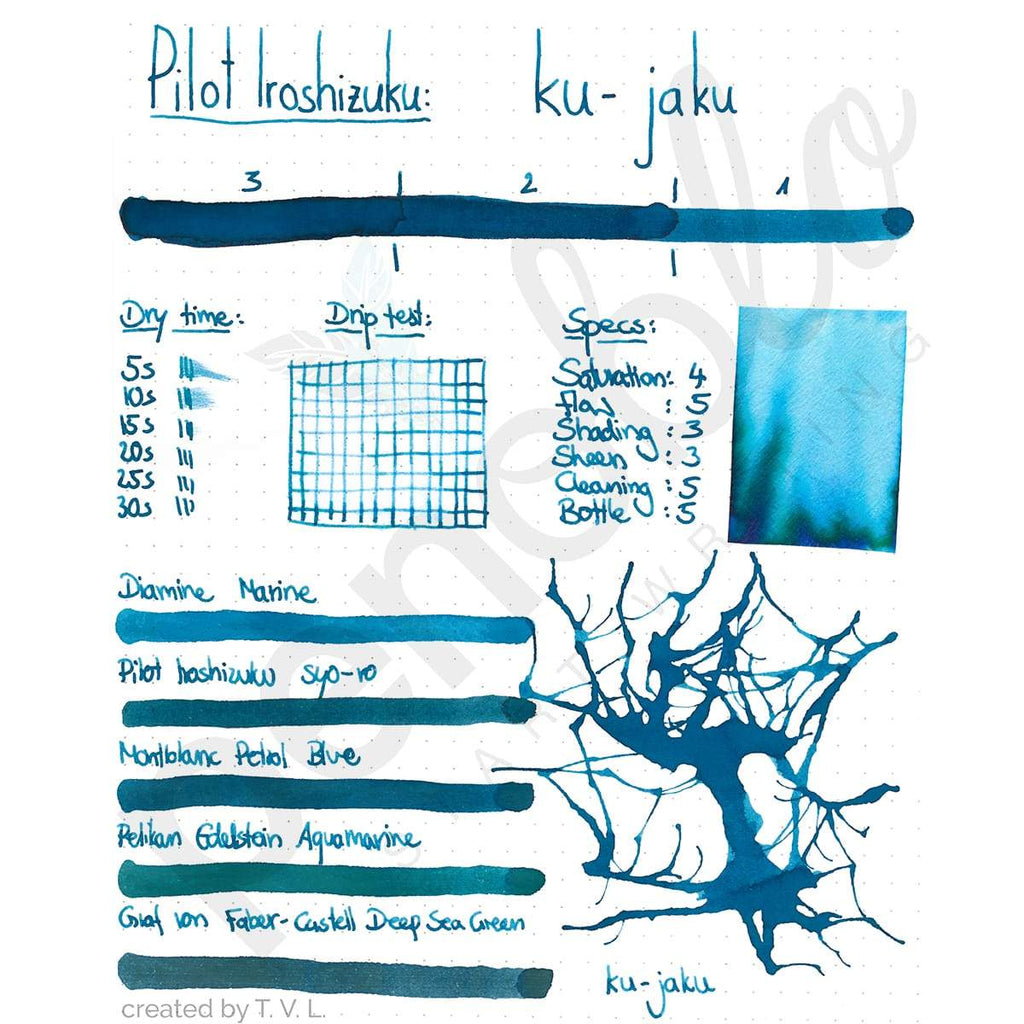 Pilot Iroshizuku: ku-jaku
3 2 1
Dry time:
5s
10s
15s
20s
25s
30s
Drip test:
Specs:
Saturation: 4
flow : 5
Shading : 3
Sheen : 3
Cleaning : 5
Bottle : 5
Diamine Marine
Pilot Iroshizuku syo-ro
Montblanc Petrol Blue
Pelikan Edelstein Aquamarine
Graf von Faber-Castell Deep Sea Green
ku-jaku
created by T. V. L.
penoblo
SMART WRITING